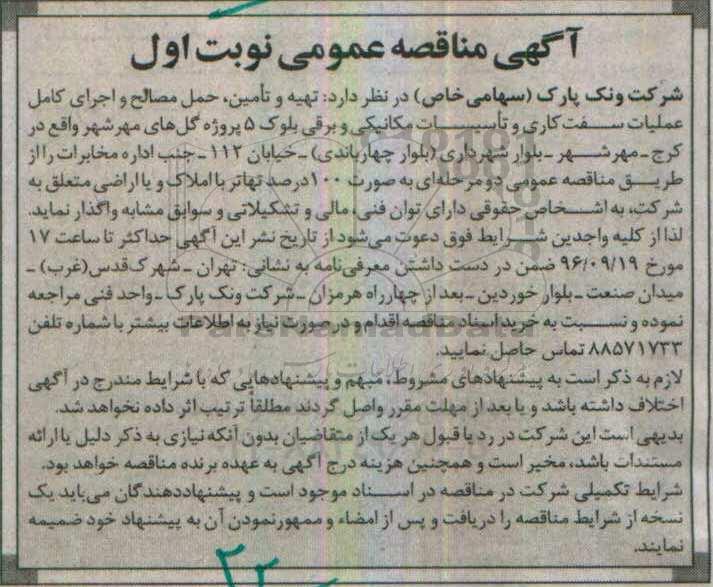 آگهی مناقصه عمومی نوبت اول
شرکت ونک پارک (سهامی خاص) در نظر دارد: تهیه و تأمین، حمل مصالح و اجرای کامل
عملیات سفت‌کاری و تأسیسات مکانیکی و برقی بلوک ۵ پروژه گل‌های مهرشهر واقع در
کرج ـ مهرشهر ـ بلوار شهرداری (بلوار چهارباندی) ـ خیابان ۱۱۲ ـ جنب اداره مخابرات را از
طریق مناقصه عمومی دو مرحله‌ای به صورت ۱۰۰درصد تهاتر با املاک و یا اراضی متعلق به
شرکت، به اشخاص حقوقی دارای توان فنی، مالی و تشکیلاتی و سوابق مشابه واگذار نماید.
لذا از کلیه واجدین شرایط فوق دعوت می‌شود از تاریخ نشر این آگهی حداکثر تا ساعت ۱۷
مورخ ۹۶/۰۹/۱۹ ضمن در دست داشتن معرفی‌نامه به نشانی: تهران ـ شهرک قدس(غرب) ـ
میدان صنعت ـ بلوار خوردین ـ بعد از چهارراه هرمزان ـ شرکت ونک پارک ـ واحد فنی مراجعه
نموده و نسبت به خرید اسناد مناقصه اقدام و در صورت نیاز به اطلاعات بیشتر با شماره تلفن
۸۸۵۷۱۷۳۳ تماس حاصل نمایید.
لازم به ذکر است به پیشنهادهای مشروط، مبهم و پیشنهادهایی که با شرایط مندرج در آگهی
اختلاف داشته باشد و یا بعد از مهلت مقرر واصل گردند مطلقاً ترتیب اثر داده نخواهد شد.
بدیهی است این شرکت در رد یا قبول هر یک از متقاضیان بدون آنکه نیازی به ذکر دلیل یا ارائه
مستندات باشد، مخیر است و همچنین هزینه درج آگهی به عهده برنده مناقصه خواهد بود.
شرایط تکمیلی شرکت در مناقصه در اسناد موجود است و پیشنهاددهندگان می‌باید یک
نسخه از شرایط مناقصه را دریافت و پس از امضاء و ممهورنمودن آن به پیشنهاد خود ضمیمه
نمایند.
ParsNamadData